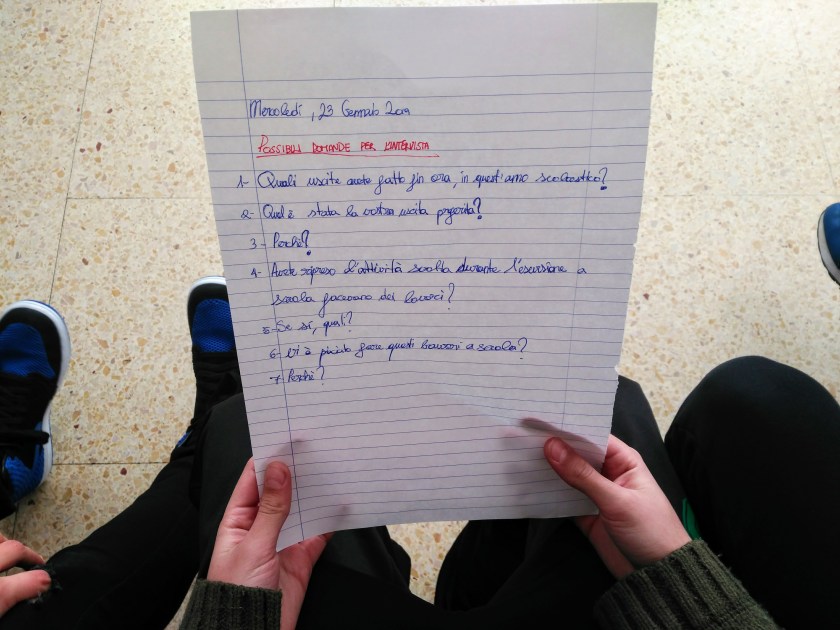 Mercoledì, 23 Gennaio 2019
POSSIBILI DOMANDE PER L'INTERVISTA
1- Quali uscite avete fatto fin ora, in quest'anno scolastico?
2- Qual è stata la vostra uscita preferita?
3- Perché?
4- Avete ripreso l'attività svolta durante l'escursione a
scuola facendo dei lavori?
5- Se sì, quali?
6- Vi è piaciuto fare questi lavori a scuola?
7- Perché?